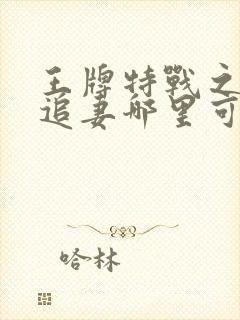 王牌特戰之
追妻哪里可
哈林